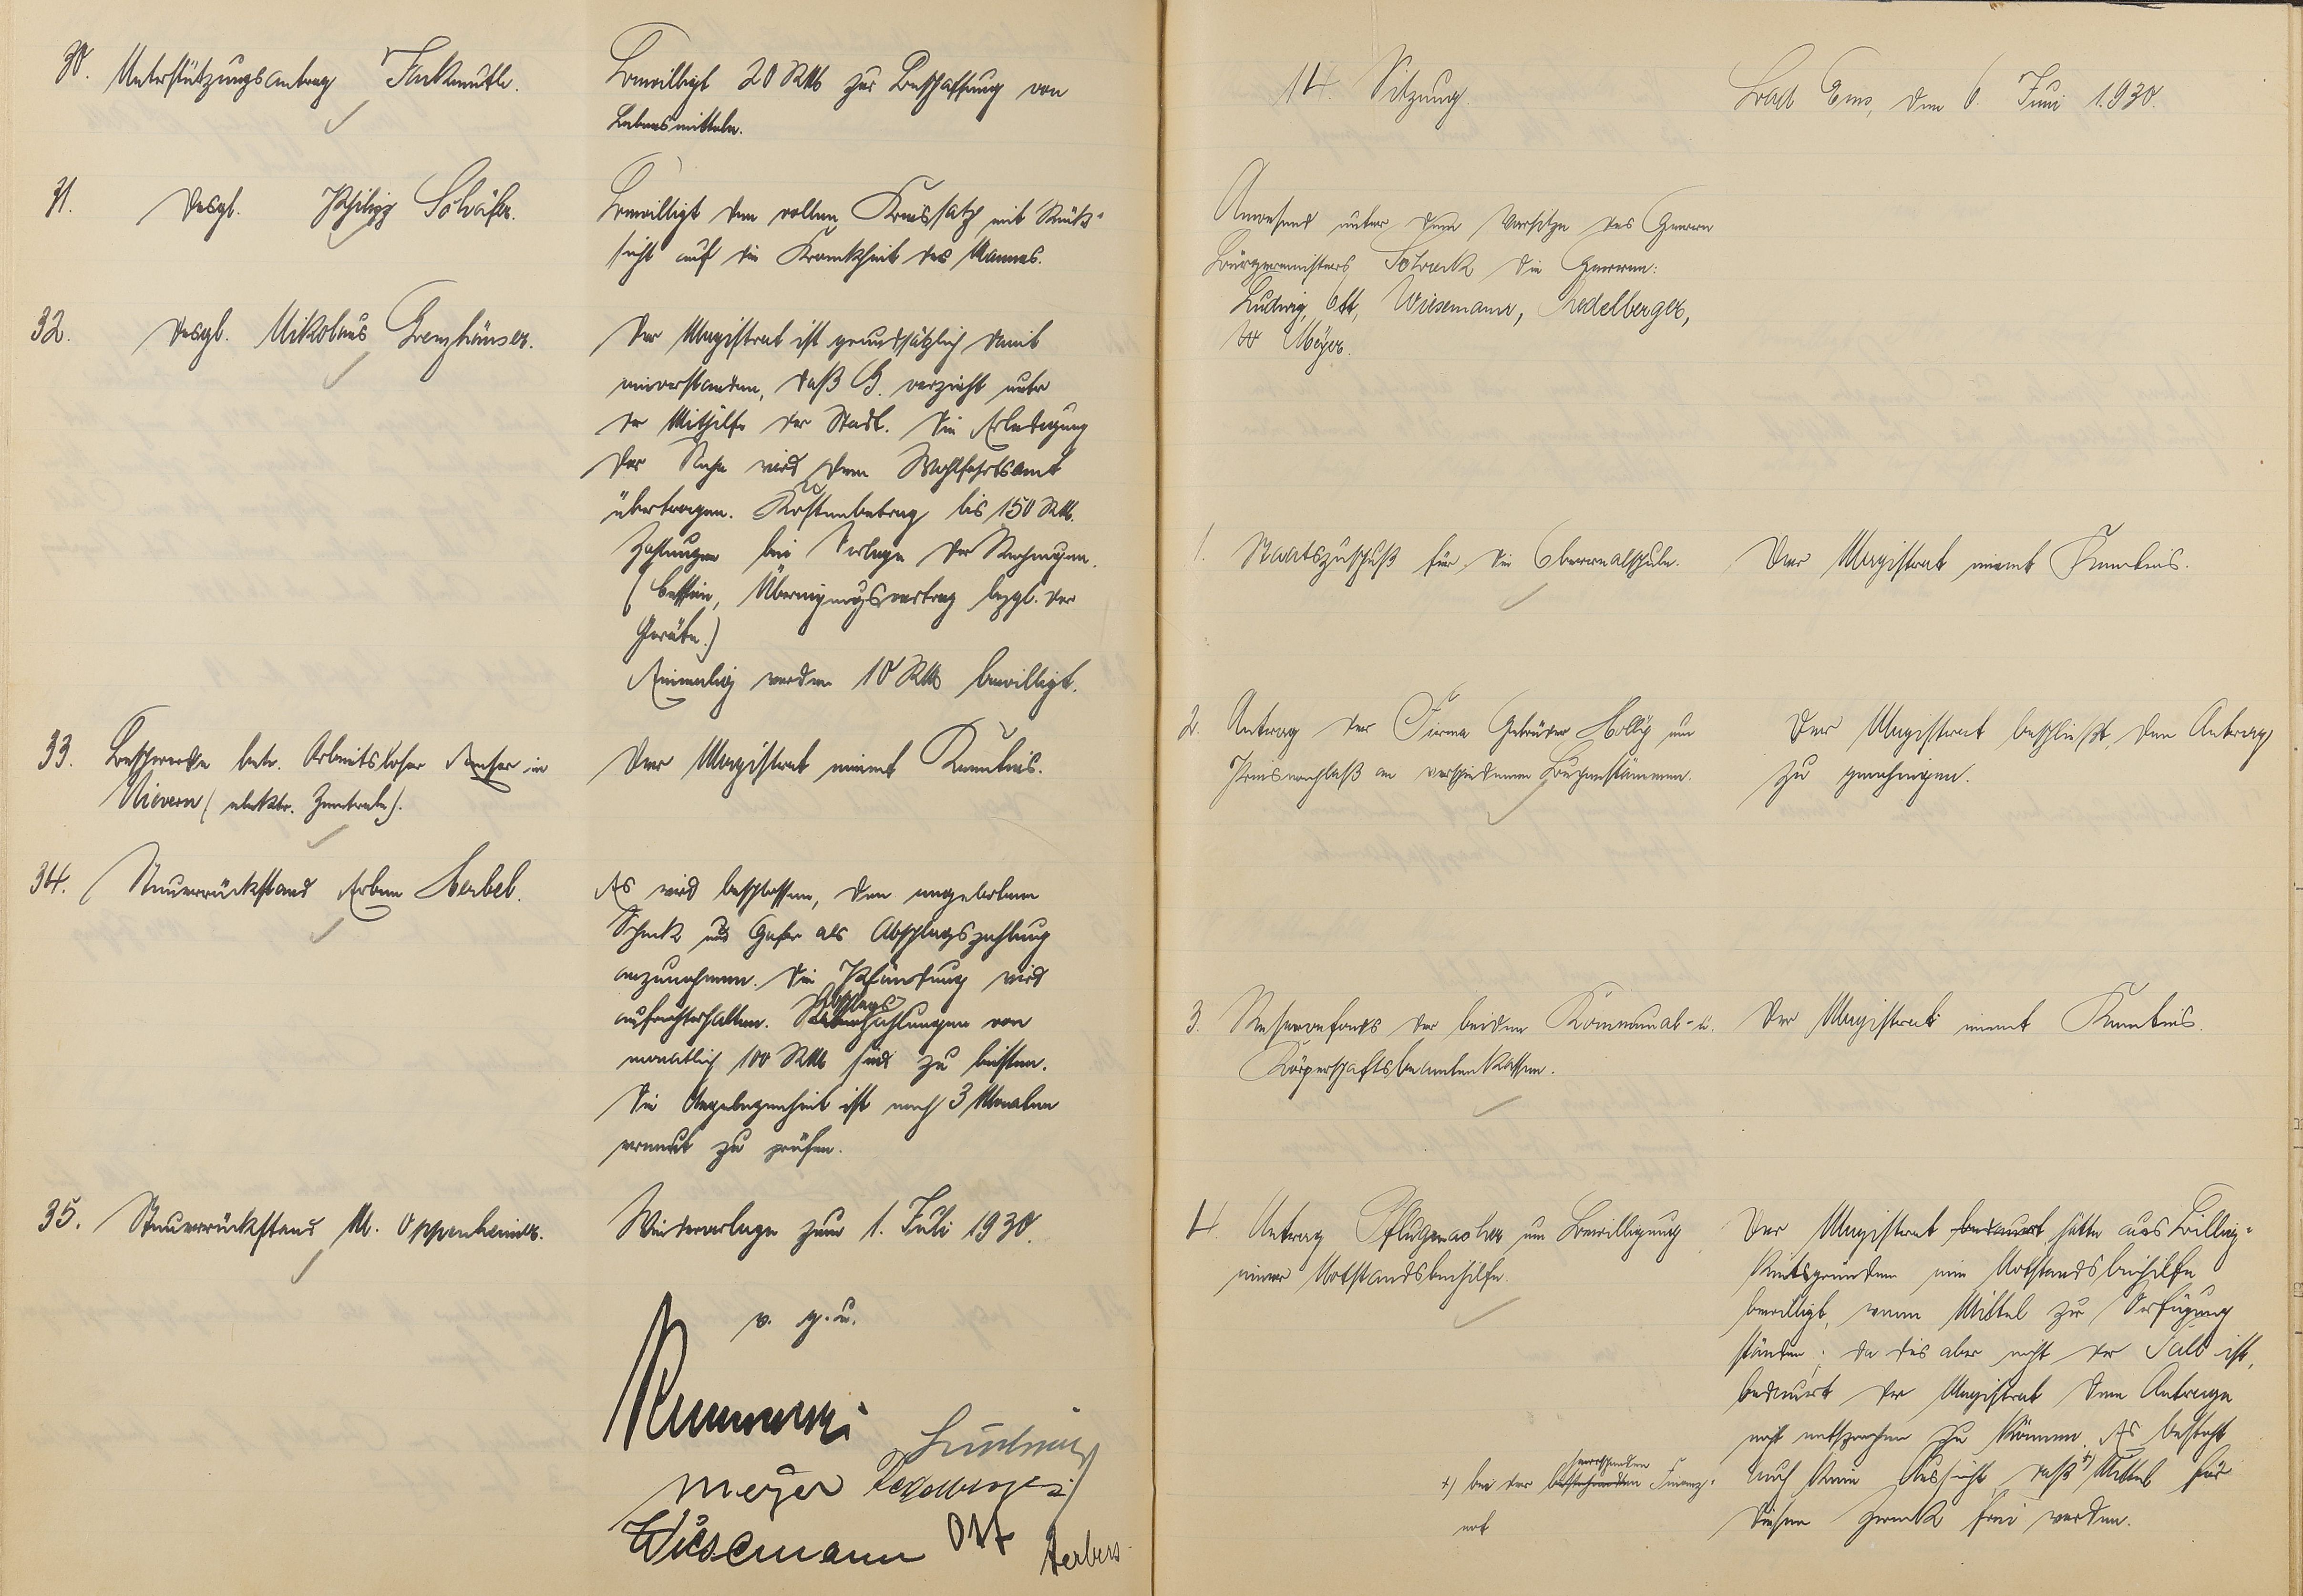 30. Unterstützungsantrag
Bewilligt 20 RM zur Beschaffung von
Lebensmitteln.
31. Desgl. Philipp Schäfer.
Bewilligt den vollen Kreissatz mit Rück-
sicht auf die Krankheit des Mannes.
32. Desgl. Nikolaus Grenzhäuser.
Der Magistrat ist grundsätzlich damit
einverstanden, daß G. verzieht unter
der Mithilfe der Stadt. Die Erledigung
der Sache wird dem Wohlfahrtsamt
übertragen. Kostenbetrag bis 150 RM.
Zahlungen bei Vorlage der Rechnungen.
( Übereignungsvertrag bezgl. der
Geräte.)
Einmalig werden 10 RM bewilligt.
33. Beschwerde betr. Arbeitsloser in
Nievern (elektr. Zentrale).
Der Magistrat nimmt Kenntnis.
34. Steuerrückstand Erben Herbel.
Es wird beschlossen, den angebotenen
Scheck und als Abschlagszahlung
anzunehmen. Die Pfändung wird
aufrechterhalten. Abschlags
zahlungen von
monatlich 100 RM sind zu leisten.
Die Angelegenheit ist nach 3 Monaten
erneut zu prüfen.
35. Steuerrückstand M. Oppenheimer.
Wiedervorlage zum 1. Juli 1930.
v. g. u.
Meyer
Wiesemann Ott
14. Sitzung.
Bad Ems, den 6. Juni 1930.
Anwesend unter dem Vorsitze des Herrn
Bürgermeisters Schreck die Herren:
Ludwig, Ott, Wiesemann,
Meyer.
1. Staatszuschuß für die Oberrealschule.
Der Magistrat nimmt Kenntnis.
2. Antrag der Firma Gebrüder Holly um
Preisnachlaß an verschiedenen Buchenstämmen.
Der Magistrat beschließt, den Antrag
zu genehmigen.
3. Reservefonds der beiden Kommunal- u.
Körperschaftsbeamtenkassen.
Der Magistrat nimmt Kenntnis.
4. Antrag Pflugmacher um Bewilligung
einer Notstandsbeihilfe.
Der Magistrat bedauert hätte aus Billig-
keitsgründen eine Notstandsbeihilfe
bewilligt, wenn Mittel zur Verfügung
ständen; da dies aber nicht der Fall ist,
bedauert der Magistrat dem Antrage
nicht entsprechen zu können. Es besteht
auch keine Aussicht, daß +) Mittel für
diesen Zweck frei werden.
+) bei der bestehenden Finanz-
not